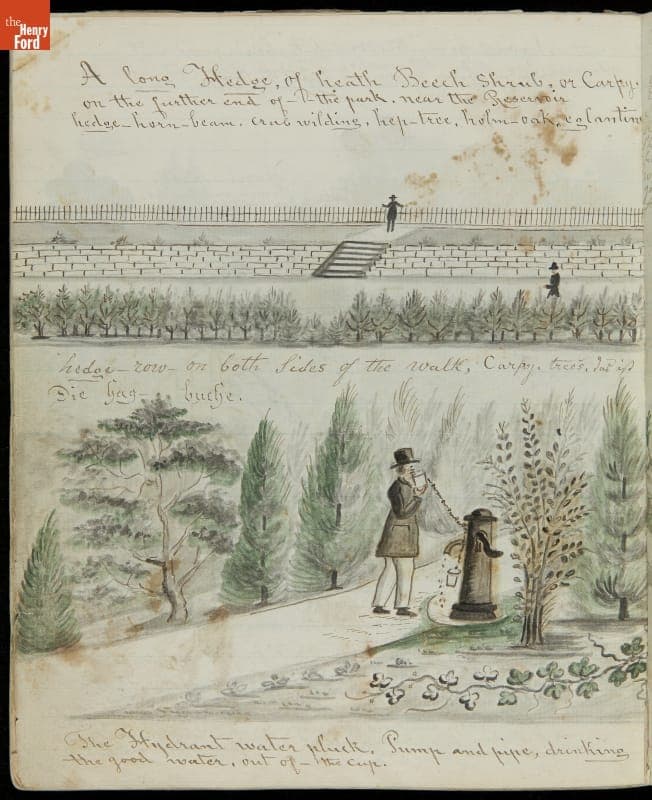 the
Henry
Ford
A long Hedge, of heath Beech Shrub, or Carpy.
on the further end of - the park, near the Reservoir
hedge - horn - beam. crab wilding, hep - tree, holm - oak, eglantin
hedge - row - on both Sides of the walk, Carpy. trees, das ist
Die hag - buche.
The Hydrant water pluck. Pump and pipe, drinking
the good water, out of - the cup.